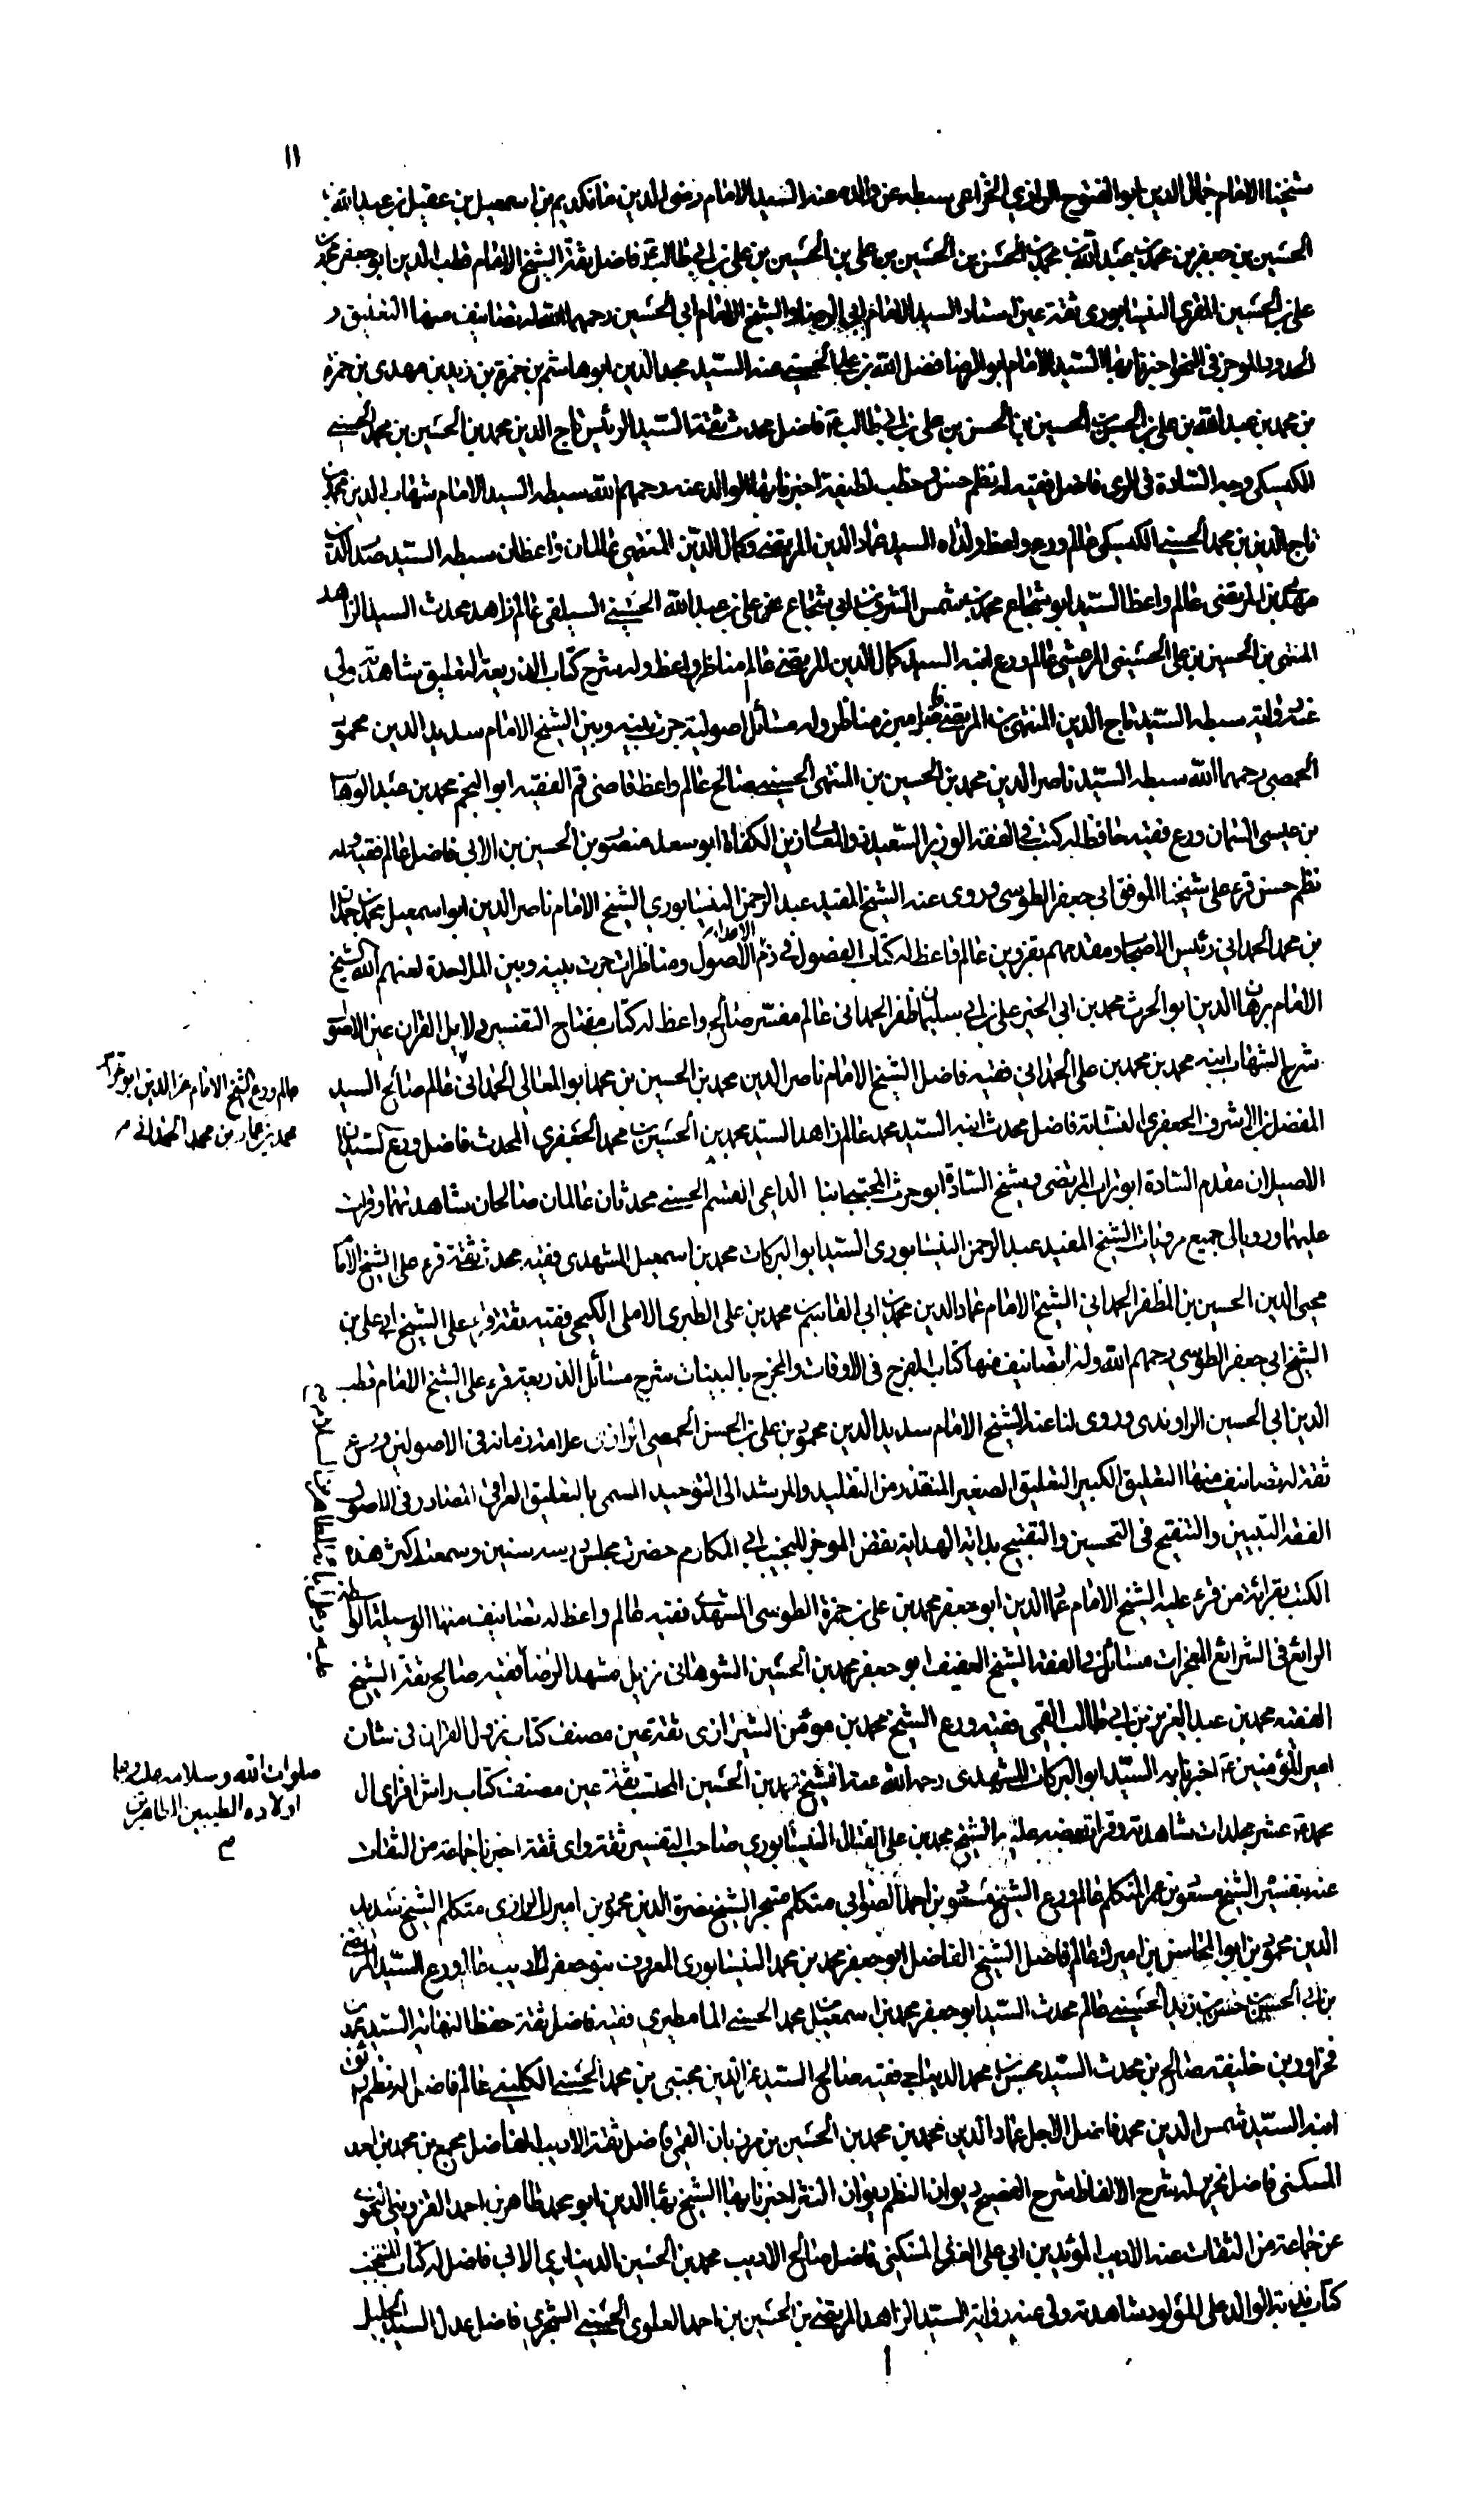 ١١
شيخنا الامام جمال الدين ابو الفتوح الرازي الخزاعي سبطه عن والده عنه السيد الامام رضى الدين مانكديم بن اسمعيل بن عقيل بن عبدالله بن
الحسين بن جعفر بن محمد بن عبدالله بن محمد بن الحسن بن الحسين بن على بن الحسين بن على بن ابى طالب ع فاضل ثقة الشيخ الامام قطب الدين ابو جعفر محمد بن
على بن الحسين المقرى النيسابورى ثقة عين استاد السيد الامام ابى الرضا والشيخ الامام ابى الحسين رحمهم الله له تصانيف منها التعليق و
الحدود الموجز فى النحو اخبرنا بها السيد الامام ابو الرضا فضل الله بن على الحسينى عنه السيد مجد الدين ابو هاشم بن حمزة بن زيد بن مهدى بن حمزة
بن محمد بن عبدالله بن على بن الحسن بن الحسين بن الحسن بن على بن ابى طالب ع فاضل محدث ثقة السيد الرئيس تاج الدين محمد بن الحسين بن محمد الحسينى
الكيسكى وجه السادة فى الرى فاضل فقيه له نظم حسن و خطب لطيفة اخبرنا بها الوالد عنه رحمهم الله سبطه السيد الامام شهاب الدين محمد بن
تاج الدين بن محمد الحسينى الكيسكى عالم ورع واعظ ولداه السيد عماد الدين المرتضى وكمال الدين المنتهى عالمان واعظان سبطه السيد صدر الدين
مهدى بن المرتضى عالم واعظ السيد ابو شجاع محمد بن شمس الشرف بن ابى شجاع عن على بن عبد الله الحسينى السيلقى عالم زاهد محدث السيد الزاهد
المنتهى بن الحسين بن على الحسينى المرعشى عالم ورع ابنه السيد كمال الدين المرتضى عالم مناظر واعظ وله شرح كتاب الذريعة التعليق شاهدته ولى
عنه رواية سبطه السيد تاج الدين المنتهى بن المرتضى فقيه مبرز مناظر وله مسائل اصولية جرت بينه وبين الشيخ الامام سديد الدين محمود
الحمصى رحمهما الله سبطه السيد ناصر الدين محمد بن الحسين بن المنتهى الحسينى صالح عالم واعظ قاضى قم الفقيه ابو النجم محمد بن عبد الوهاب
بن عيسى السمان ورع فقيه حافظ له كتب فى الفقه الوزير السعيد ذو المعالى زين الكفاة ابو سعد منصور بن الحسين بن الابى فاضل عالم فقيه وله
نظم حسن قرء على شيخنا الموفق ابى جعفر الطوسى وروى عنه الشيخ المفيد عبد الرحمن النيسابورى الشيخ الامام ناصر الدين ابو اسمعيل محمد بن حمدان
بن محمد الحمدانى رئيس الاصحاب ومقدمهم بقزوين عالم واعظ له كتاب الفصول فى ذم الاصول ومناظرات جرت بينه وبين الملاحدة لعنهم الله الشيخ
الامام برهان الدين ابو الحرث محمد بن ابى الخير على بن ابى سليمان ظفر الحمدانى عالم مفسر صالح واعظ له كتاب مفتاح التفسير دلايل القران عين الاصول
شرح الشهاب ابنه محمد بن محمد بن على الحمدانى فقيه فاضل الشيخ الامام ناصر الدين محمد بن الحسين بن محمد ابو المعالى الحمدانى عالم صالح السيد
عالم ورع الشيخ الامام عز الدين ابو فراس
محمد بن عمار بن محمد الحمدانى
المفضل بن الاشرف الجعفرى النسابة فاضل محدث ابنه السيد محمد عالم زاهد السيد محمد بن الحسين بن محمد الجعفرى المحدث فاضل ورع السيدان
الاصيلان مقدم السادة ابو تراب المرتضى وشيخ السادة ابو حرب المجتبى ابنا الداعى القسم الحسينى محدثان عالمان صالحان شاهدتهما وقرات
عليهما ورويا لى جميع مرويات الشيخ المفيد عبد الرحمن النيسابورى السيد ابو البركات محمد بن اسمعيل المشهدى فقيه محدث ثقة قرء على الشيخ الامام
محيى الدين الحسين بن المظفر الحمدانى الشيخ الامام عماد الدين محمد بن ابى القاسم بن محمد بن على الطبرى الاملى الكجى فقيه ثقة قرء على الشيخ ابى على بن
الشيخ ابى جعفر الطوسى رحمهم الله وله تصانيف منها كتاب الفرج فى الاوقات والمخرج بالبينات شرح مسائل الذريعة قرء على الشيخ الامام قطب
الدين ابى الحسين الراوندى وروى لنا عنه الشيخ الامام سديد الدين محمود بن على بن الحسن الحمصى الرازى علامة زمانه فى الاصولين ورع
ثقة له تصانيف منها التعليق الكبير التعليق الصغير المنقذ من التقليد والمرشد الى التوحيد المسمى بالتعليق العراقى المصادر فى الاصول
الفقه التبيين والتنقيح فى التحسين والتقبيح بداية الهداية نقض الموجز للنجيب ابى المكارم حضرت مجلس درسه سنين وسمعت اكثر هذه
الكتب بقراءة من قرء عليه الشيخ الامام عماد الدين ابو جعفر محمد بن على بن حمزة الطوسى المشهدى فقيه عالم واعظ له تصانيف منها الوسيلة الواسطة
الرائع فى الشرائع المعجزات مسائل فى الفقه الشيخ العفيف ابو جعفر محمد بن الحسين الشوهانى نزيل مشهد الرضا فقيه صالح ثقة الشيخ
الفقيه محمد بن عبد العزيز بن ابى طالب القمى فقيه ورع الشيخ محمد بن مومن الشيرازى ثقة عين مصنف كتاب نزول القران فى شان
امير المؤمنين ع اخبرنا به السيد ابو البركات المشهدى رحمه الله عنه الشيخ محمد بن الحسين المحتسب ثقة عين مصنف كتاب رامش افزاى ال
صلوات الله وسلامه عليه وعلى
اولاده الطيبين الطاهرين
محمد ع عشر مجلدات شاهدته وقرات بعضه عليه الشيخ محمد بن على الفتال النيسابورى صاحب التفسير ثقة واى ثقة اخبرنا جماعة من الثقات
عنه بتفسيره الشيخ مسعود بن محمد المتكلم عالم ورع الشيخ مسعود بن احمد الصوابى متكلم متبحر الشيخ نصرة الدين محمود بن اميرك الرازى متكلم الشيخ سديد
الدين محمود بن ابو المحاسن بن اميرك عالم فاضل الشيخ الفاضل ابو جعفر محمد بن محمد النيسابورى المعروف ببو جعفرك الاديب عالم ورع السيد المرتضى
بن ابى الحسين بن زيد الحسينى عالم محدث السيد ابو جعفر محمد بن اسمعيل بن محمد الحسينى المامطيرى فقيه فاضل ثقة حفظ النهاية السيد محمد بن
فخراور بن خليفة صالح بن محدث السيد محسن بن محمد فقيه صالح السيد عز الدين مجتبى بن محمد الحسينى الكلينى عالم فاضل له نظم
ابنه السيد شمس الدين محمد فاضل الاجل عماد الدين محمد بن محمد بن الحسين بن مرزبان القمى فاضل ثقة الاديب الفاضل مجمع بن محمد بن احمد
المسكنى فاضل متبحر له شرح الالفاظ شرح الفصيح ديوان النظم ديوان النثر اخبرنا بها الشيخ بهاء الدين ابو محمد طاهر بن احمد القزوينى النحوى
عن جماعة من الثقات عنه الاديب المؤيد بن ابى على المسكنى فاضل صالح الاديب محمد بن الحسين الدينارى الابى فاضل له كتاب
كتاب الوالد على المولود شاهدته ولى عنه رواية السيد الزاهد المرتضى بن الحسين بن احمد العلوى الحسينى الشجرى فاضل عدل السيد الجليل